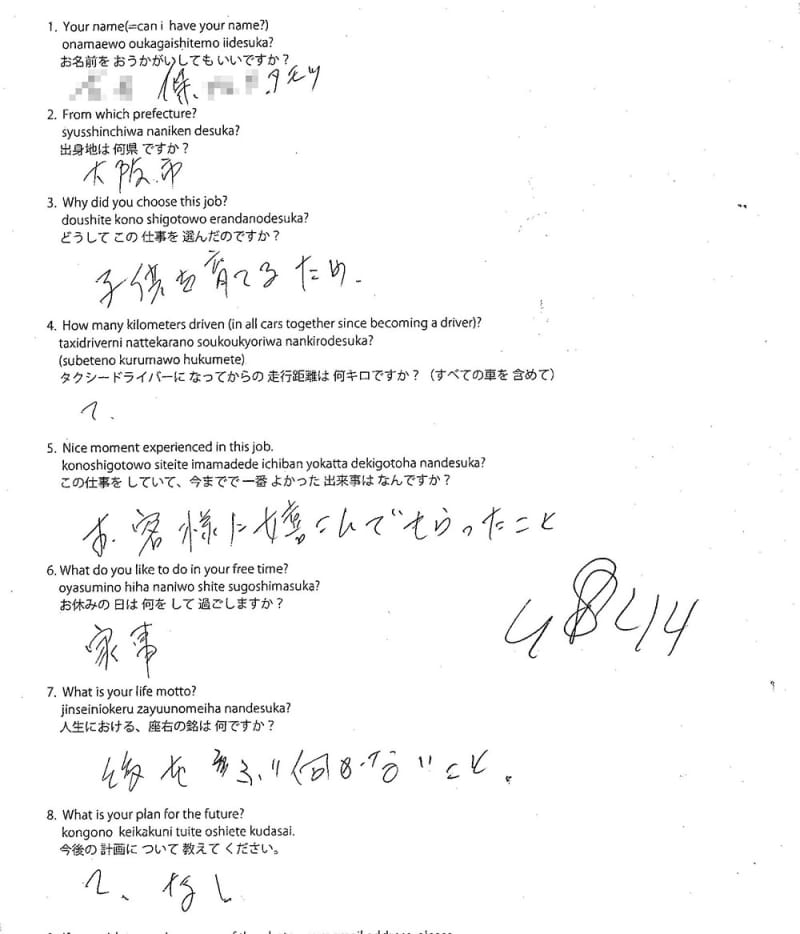 1. Your name(=can i have your name?)
onamaewo oukagaishitemo iidesuka?
お名前を おうかがいしても いいですか?
保、 .タモツ
2. From which prefecture?
syusshinchiwa naniken desuka?
出身地は 何県 ですか?
大阪市
3. Why did you choose this job?
doushite kono shigotowo erandanodesuka?
どうして この 仕事を 選んだのですか?
子供を育てるため.
4. How many kilometers driven (in all cars together since becoming a driver)?
taxidriverni nattekarano soukoukyoriwa nankirodesuka?
(subeteno kurumawo hukumete)
タクシードライバーに なってからの 走行距離は 何キロですか? (すべての車を 含めて)
5. Nice moment experienced in this job.
konoshigotowo siteite imamadede ichiban yokatta dekigotoha nandesuka?
この仕事を していて、今までで 一番 よかった 出来事は なんですか?
お客様に嬉こんでもらったこと
6. What do you like to do in your free time?
oyasumino hiha naniwo shite sugoshimasuka?
お休みの 日は 何を して 過ごしますか?
家事
4844
7. What is your life motto?
jinseiniokeru zayuunomeiha nandesuka?
人生における、座右の銘は 何ですか?
後をふり向かないこと。
8. What is your plan for the future?
kongono keikakuni tuite oshiete kudasai.
今後の 計画に ついて 教えて ください。
なし